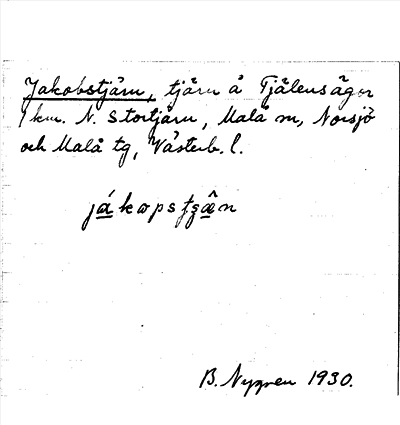 Jakobstjärn, tjärn å Tjälens ägor
1 km. N. Stortjärn, Malå sn, Norsjö
och Malå tg, Västerb. l.
já̲kopstʒæ̲̂n
B. Nygren 1930.